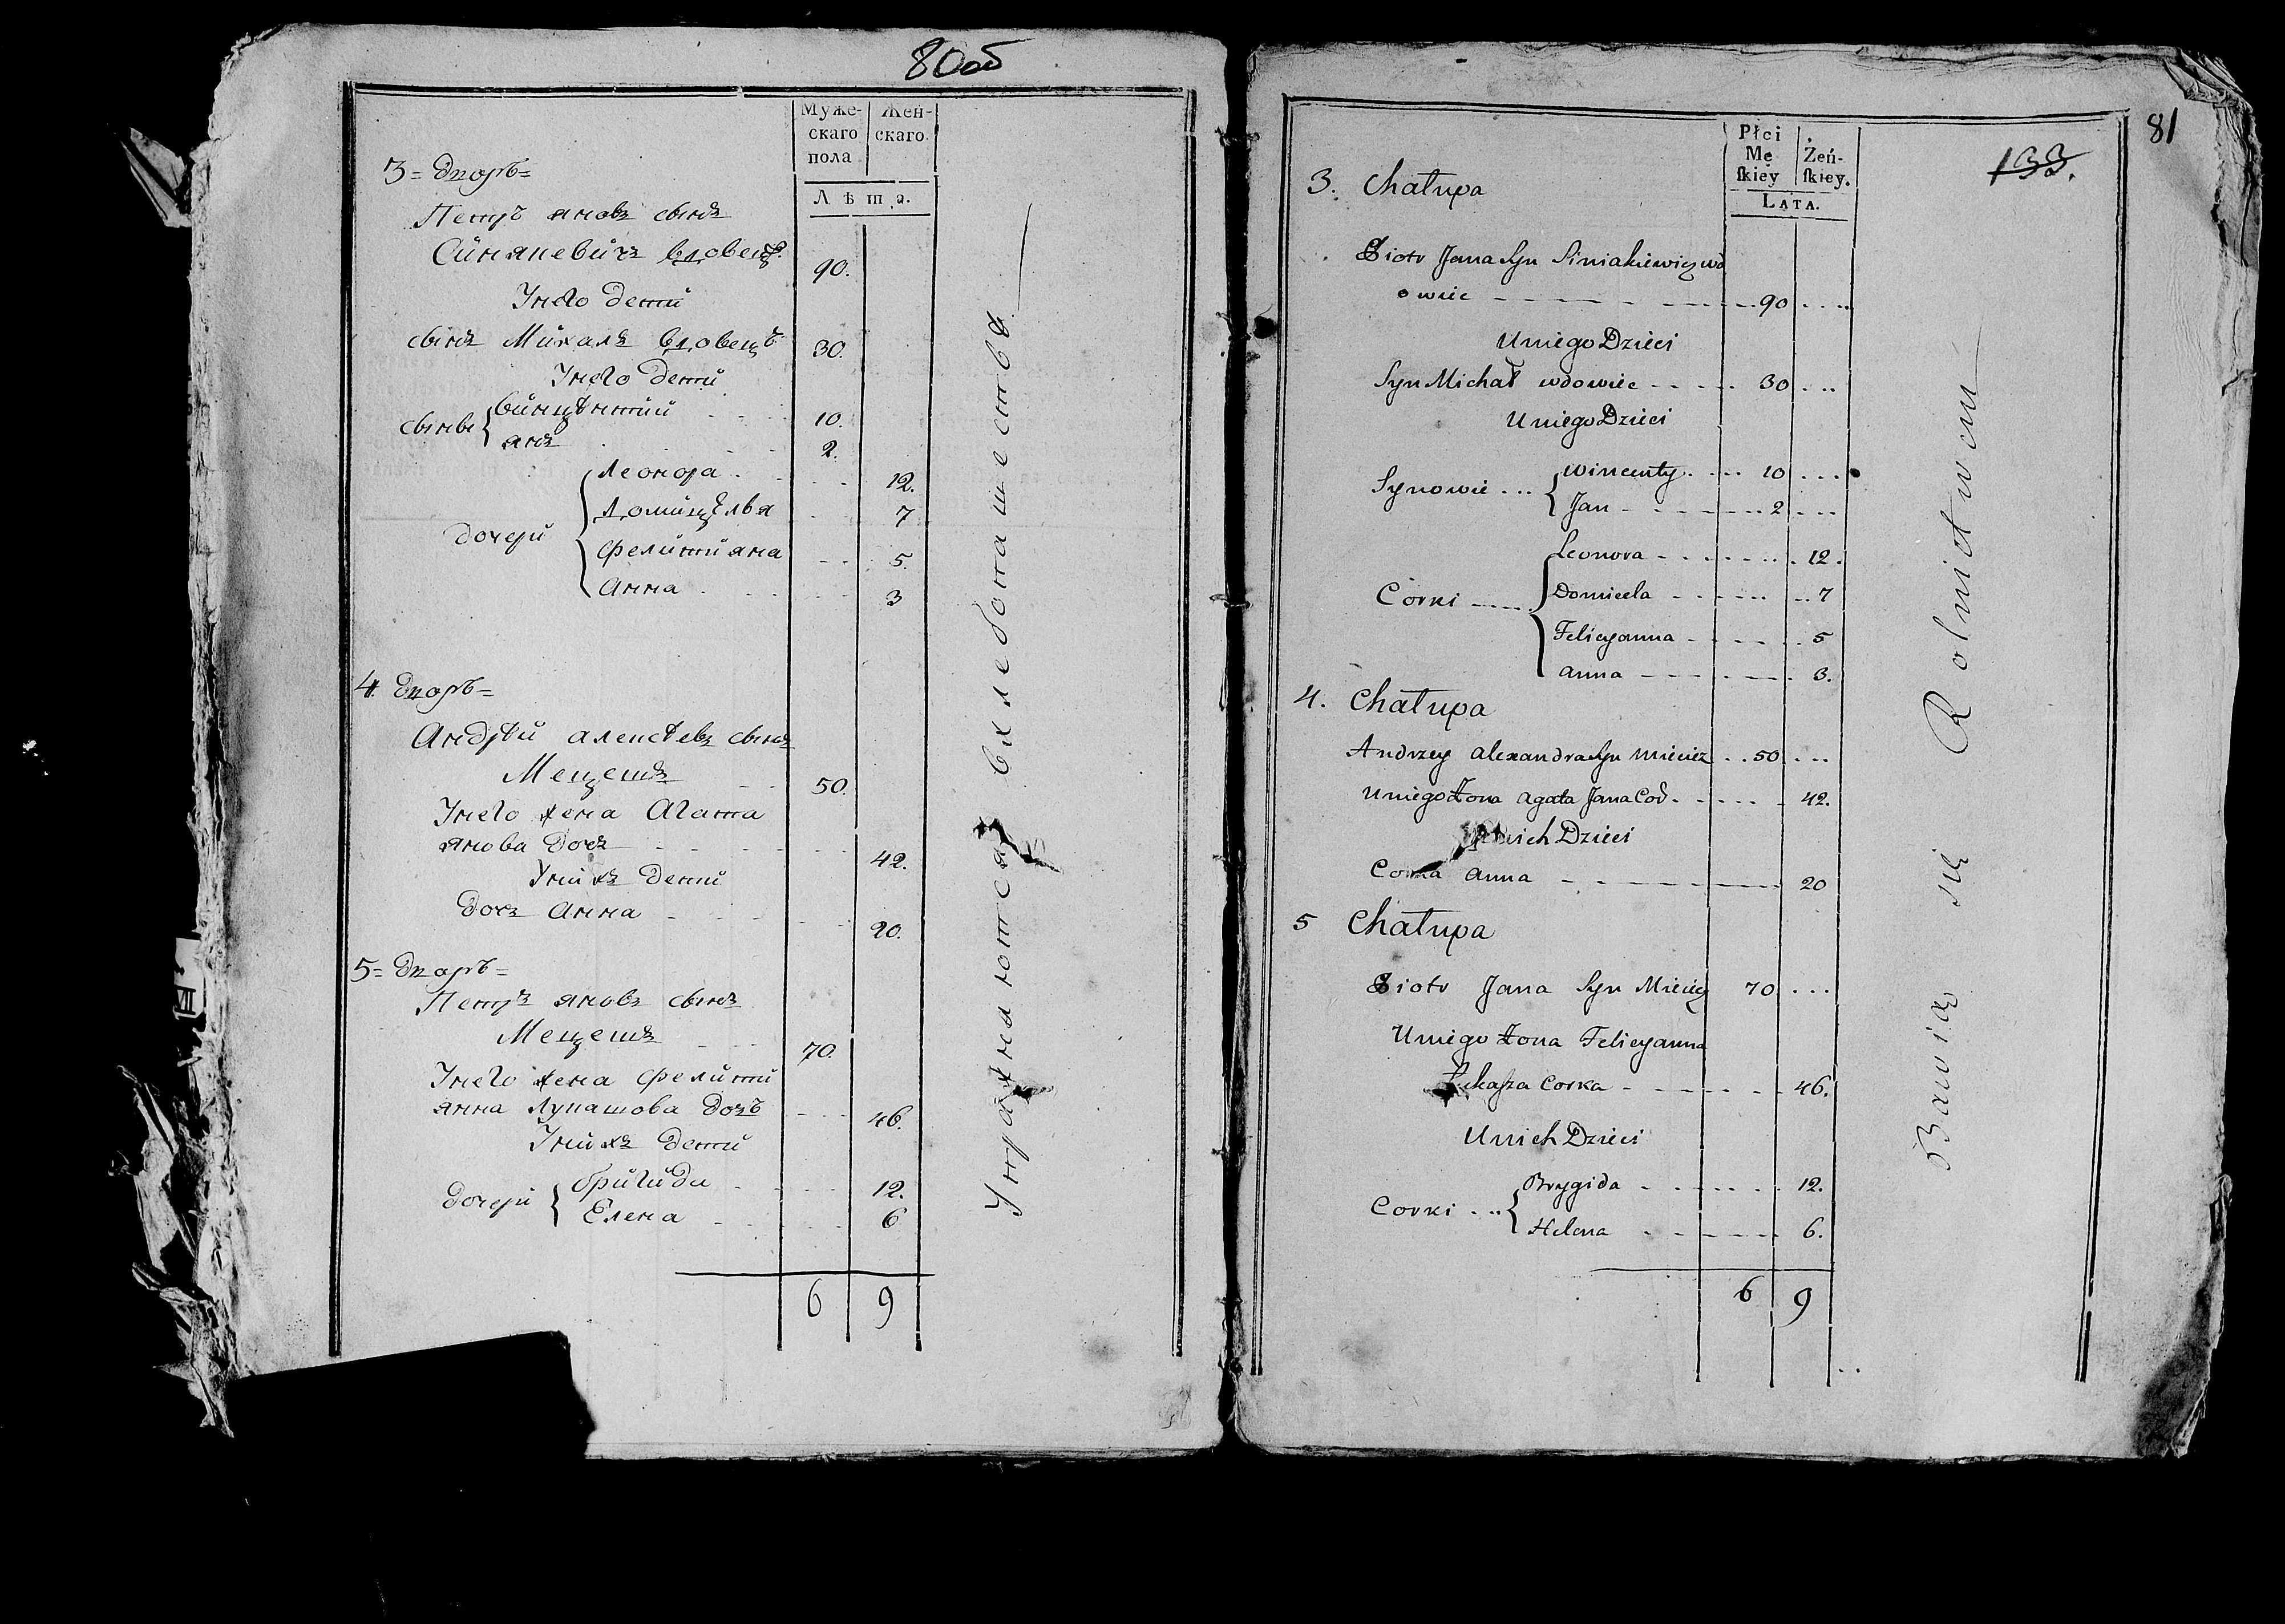 80об
Муже-
скаго
пола
Жен-
скаго.
Лѣта.
3= дворъ=
Петръ яновъ сынъ
Синякевичъ вдовецъ 90.
Унего дети
сынъ Михалъ вдовецъ 30.
Унего дети
сынви винцѣнтий 10.
янъ 2.
дочери Леонора 12.
Домицѣлья 7
Фелитияна 5.
Анна 3
4. дворъ=
Андрѣй алексѣевъ сынъ
Мецешъ 50.
Унего жена Агата
янова дочъ 42.
Унихъ дети
дочъ Анна 20.
5= дворъ=
Петръ яновъ сынъ
Мецешъ 70.
Унего жена Фелити
янна Лукашова дочъ 46.
Унихъ дети
дочери бригида 12.
Елена 6
6 9
Упражняются вхлебопашестве
81
133.
Płci
Mę
ſkiey
Żeń-
ſkiey.
LATA.
3. Chałupa
Piotr Jana Syn Siniakiewicz wd
owiec 90
Uniego Dzieci
Syn Michał wdowiec 30
Uniego Dzieci
Synowie Wincenty 10
Jan 2
Corki Leonora 12.
Domicela 7
Felicyanna 5
anna 3.
4. Chałupa
Andrzey alexandra Syn Mieciez 50
Uniego Żona agata Jana Cor. 42.
Unich Dzieci
Corka anna 20
5 Chałupa
Piotr Jana Syn Miecież 70
Uniego Żona Felicyanna
Łukasza Corka 46.
Unich Dzieci
Corki Brygida 12.
Helena 6.
6 9
Bawią się Rolnictwem